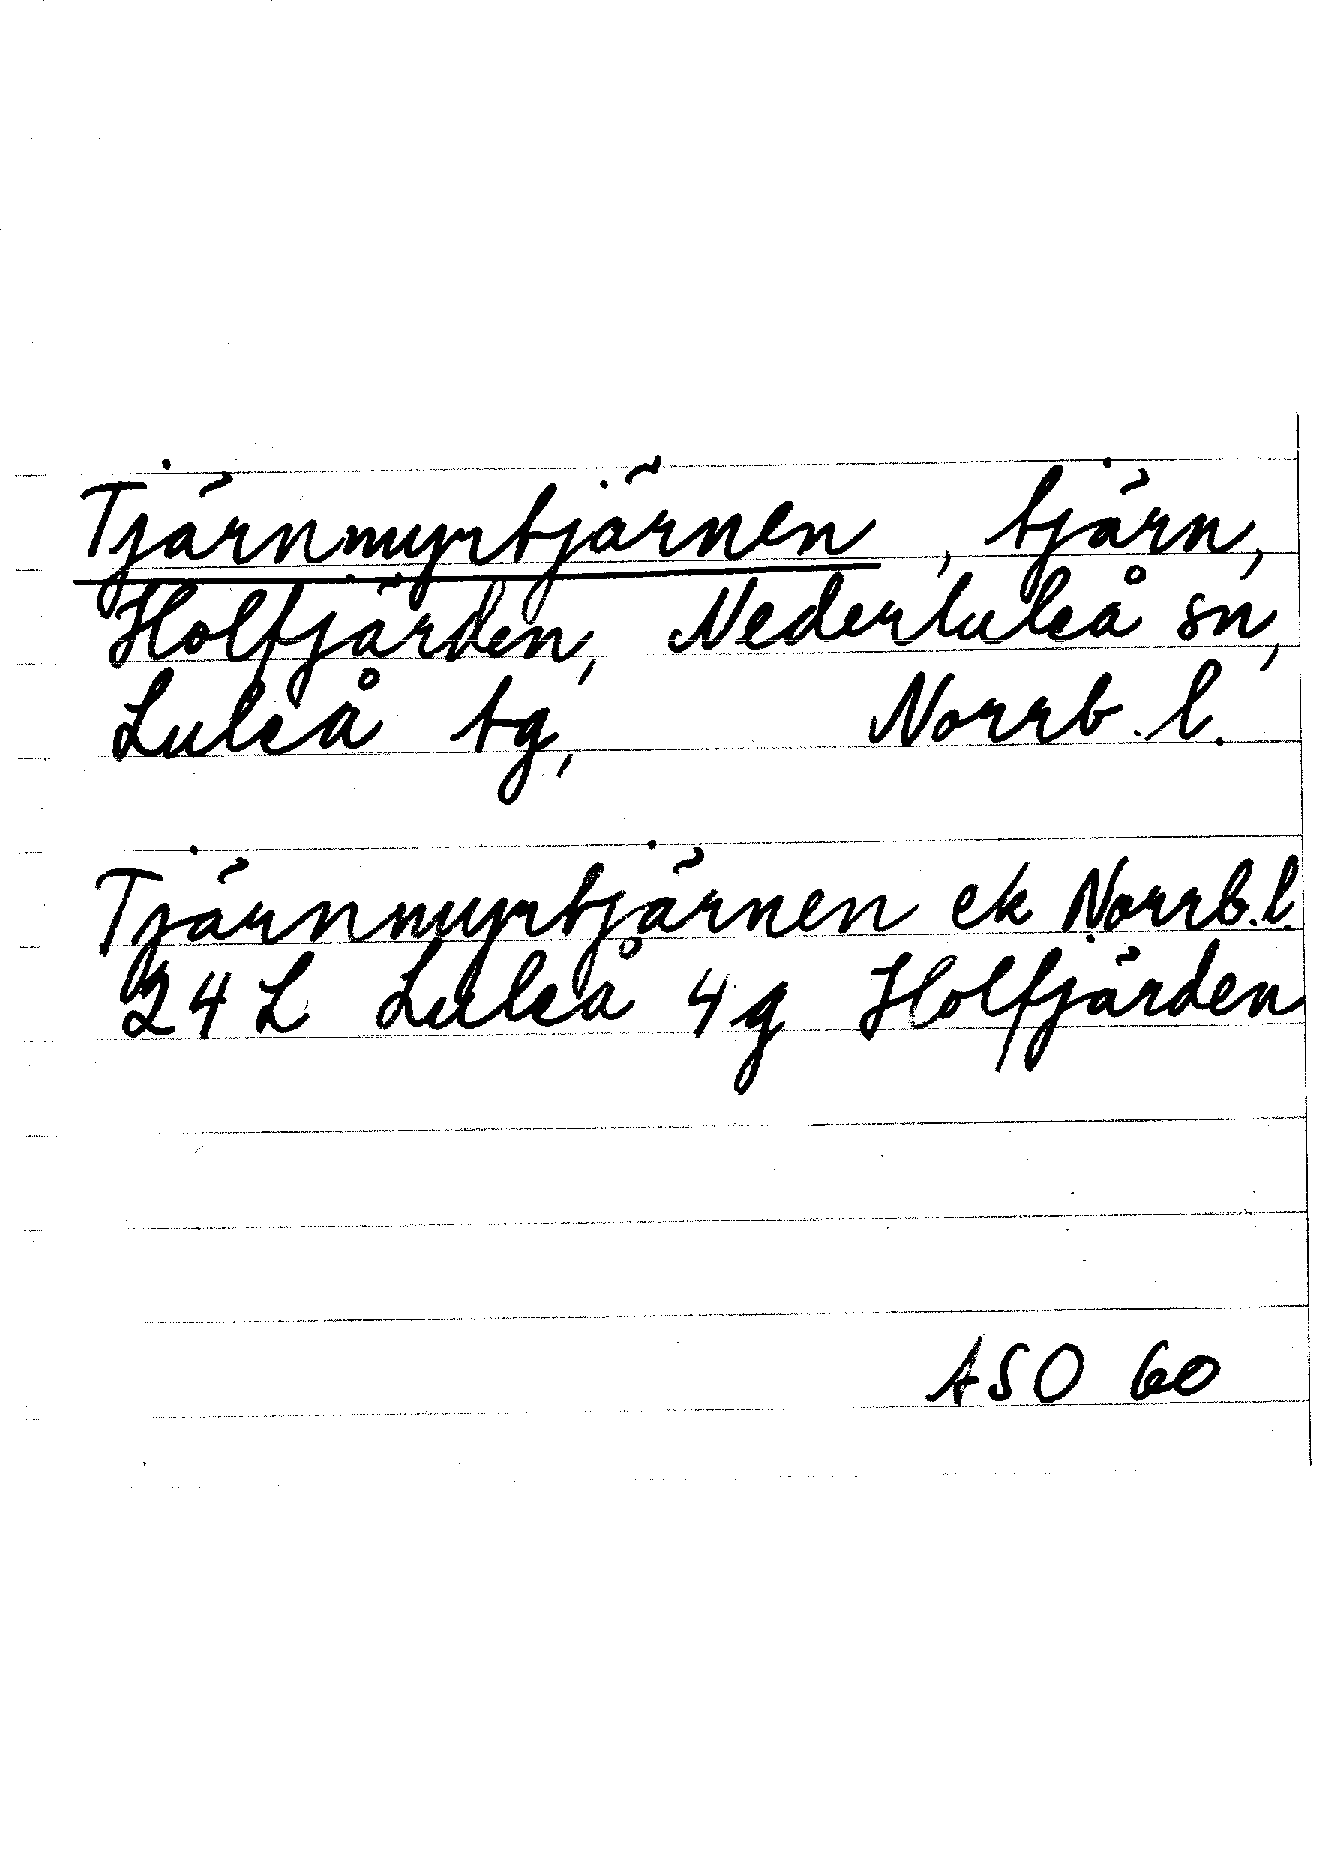 Tjärnmyrtjärnen, tjärn,
Holfjärden, Nederluleå sn,
Luleå tg, Norrb. l.
Tjärnmyrtjärnen ek Norrb. l.
24L Luleå 4g Holfjärden
ASO 60